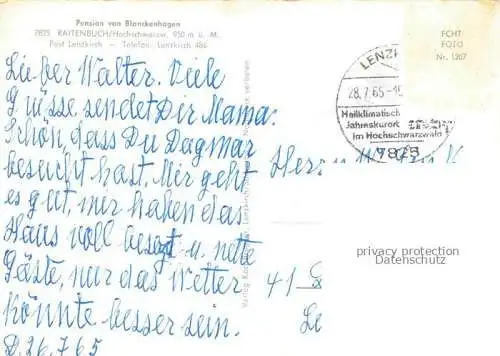 Pension von Blanckenhagen
7821 RAITENBUCH/Hochschwarzw. 950 m ü. M.
Post Lenzkirch — Telefon: Lenzkirch 486
Lieber Walter. Viele
Grüsse sendet Dir Mama.
Schön, dass Du Dagmar
besucht hast. Mir geht
es gut, wir haben das
Haus voll besetzt u. nette
Gäste, nur das Wetter
könnte besser sein.
D. 26.7.65
ECHT
FOTO
Nr. 1207
LENZK
28.7.65-16
Heilklimatisch
Jahreskurort
im Hochschwarzwald
7825
Herrn W
41
Le
privacy protection
Datenschutz